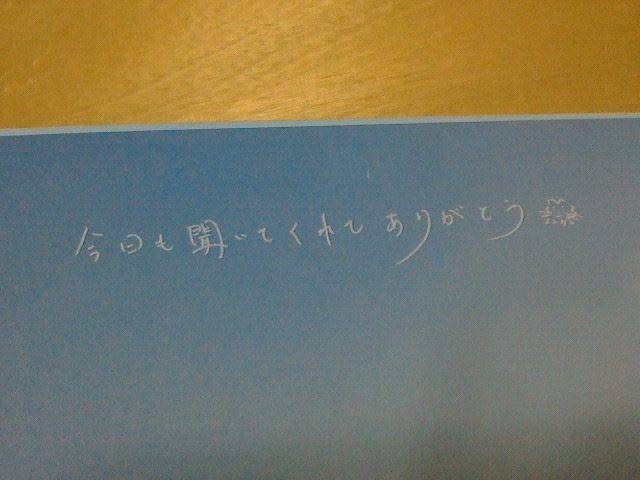 今日も聞いてくれて ありがとう